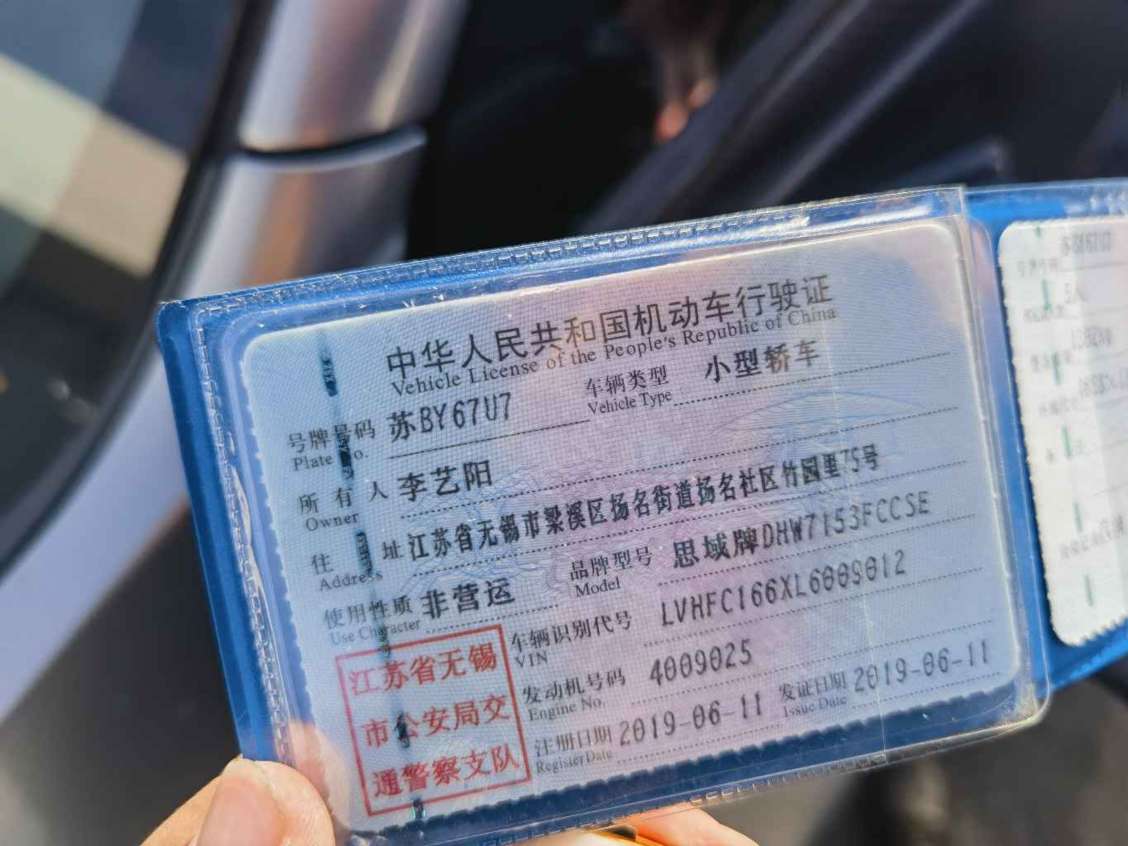 中华人民共和国机动车行驶证
Vehicle License of the People's Republic of China
号牌号码 苏BY67U7 车辆类型 小型轿车
Plate No. Vehicle Type
所有人 李艺阳
Owner
住址 江苏省无锡市梁溪区扬名街道扬名社区竹园里75号
Address
使用性质 非营运 品牌型号 思域牌DHW7153FCCSE
Use Character Model
车辆识别代号 LVHFC166XL6009012
VIN
发动机号码 4009025
Engine No.
注册日期 2019-06-11 发证日期 2019-06-11
Register Date Issue Date
江苏省无锡
市公安局交
通警察支队
5人